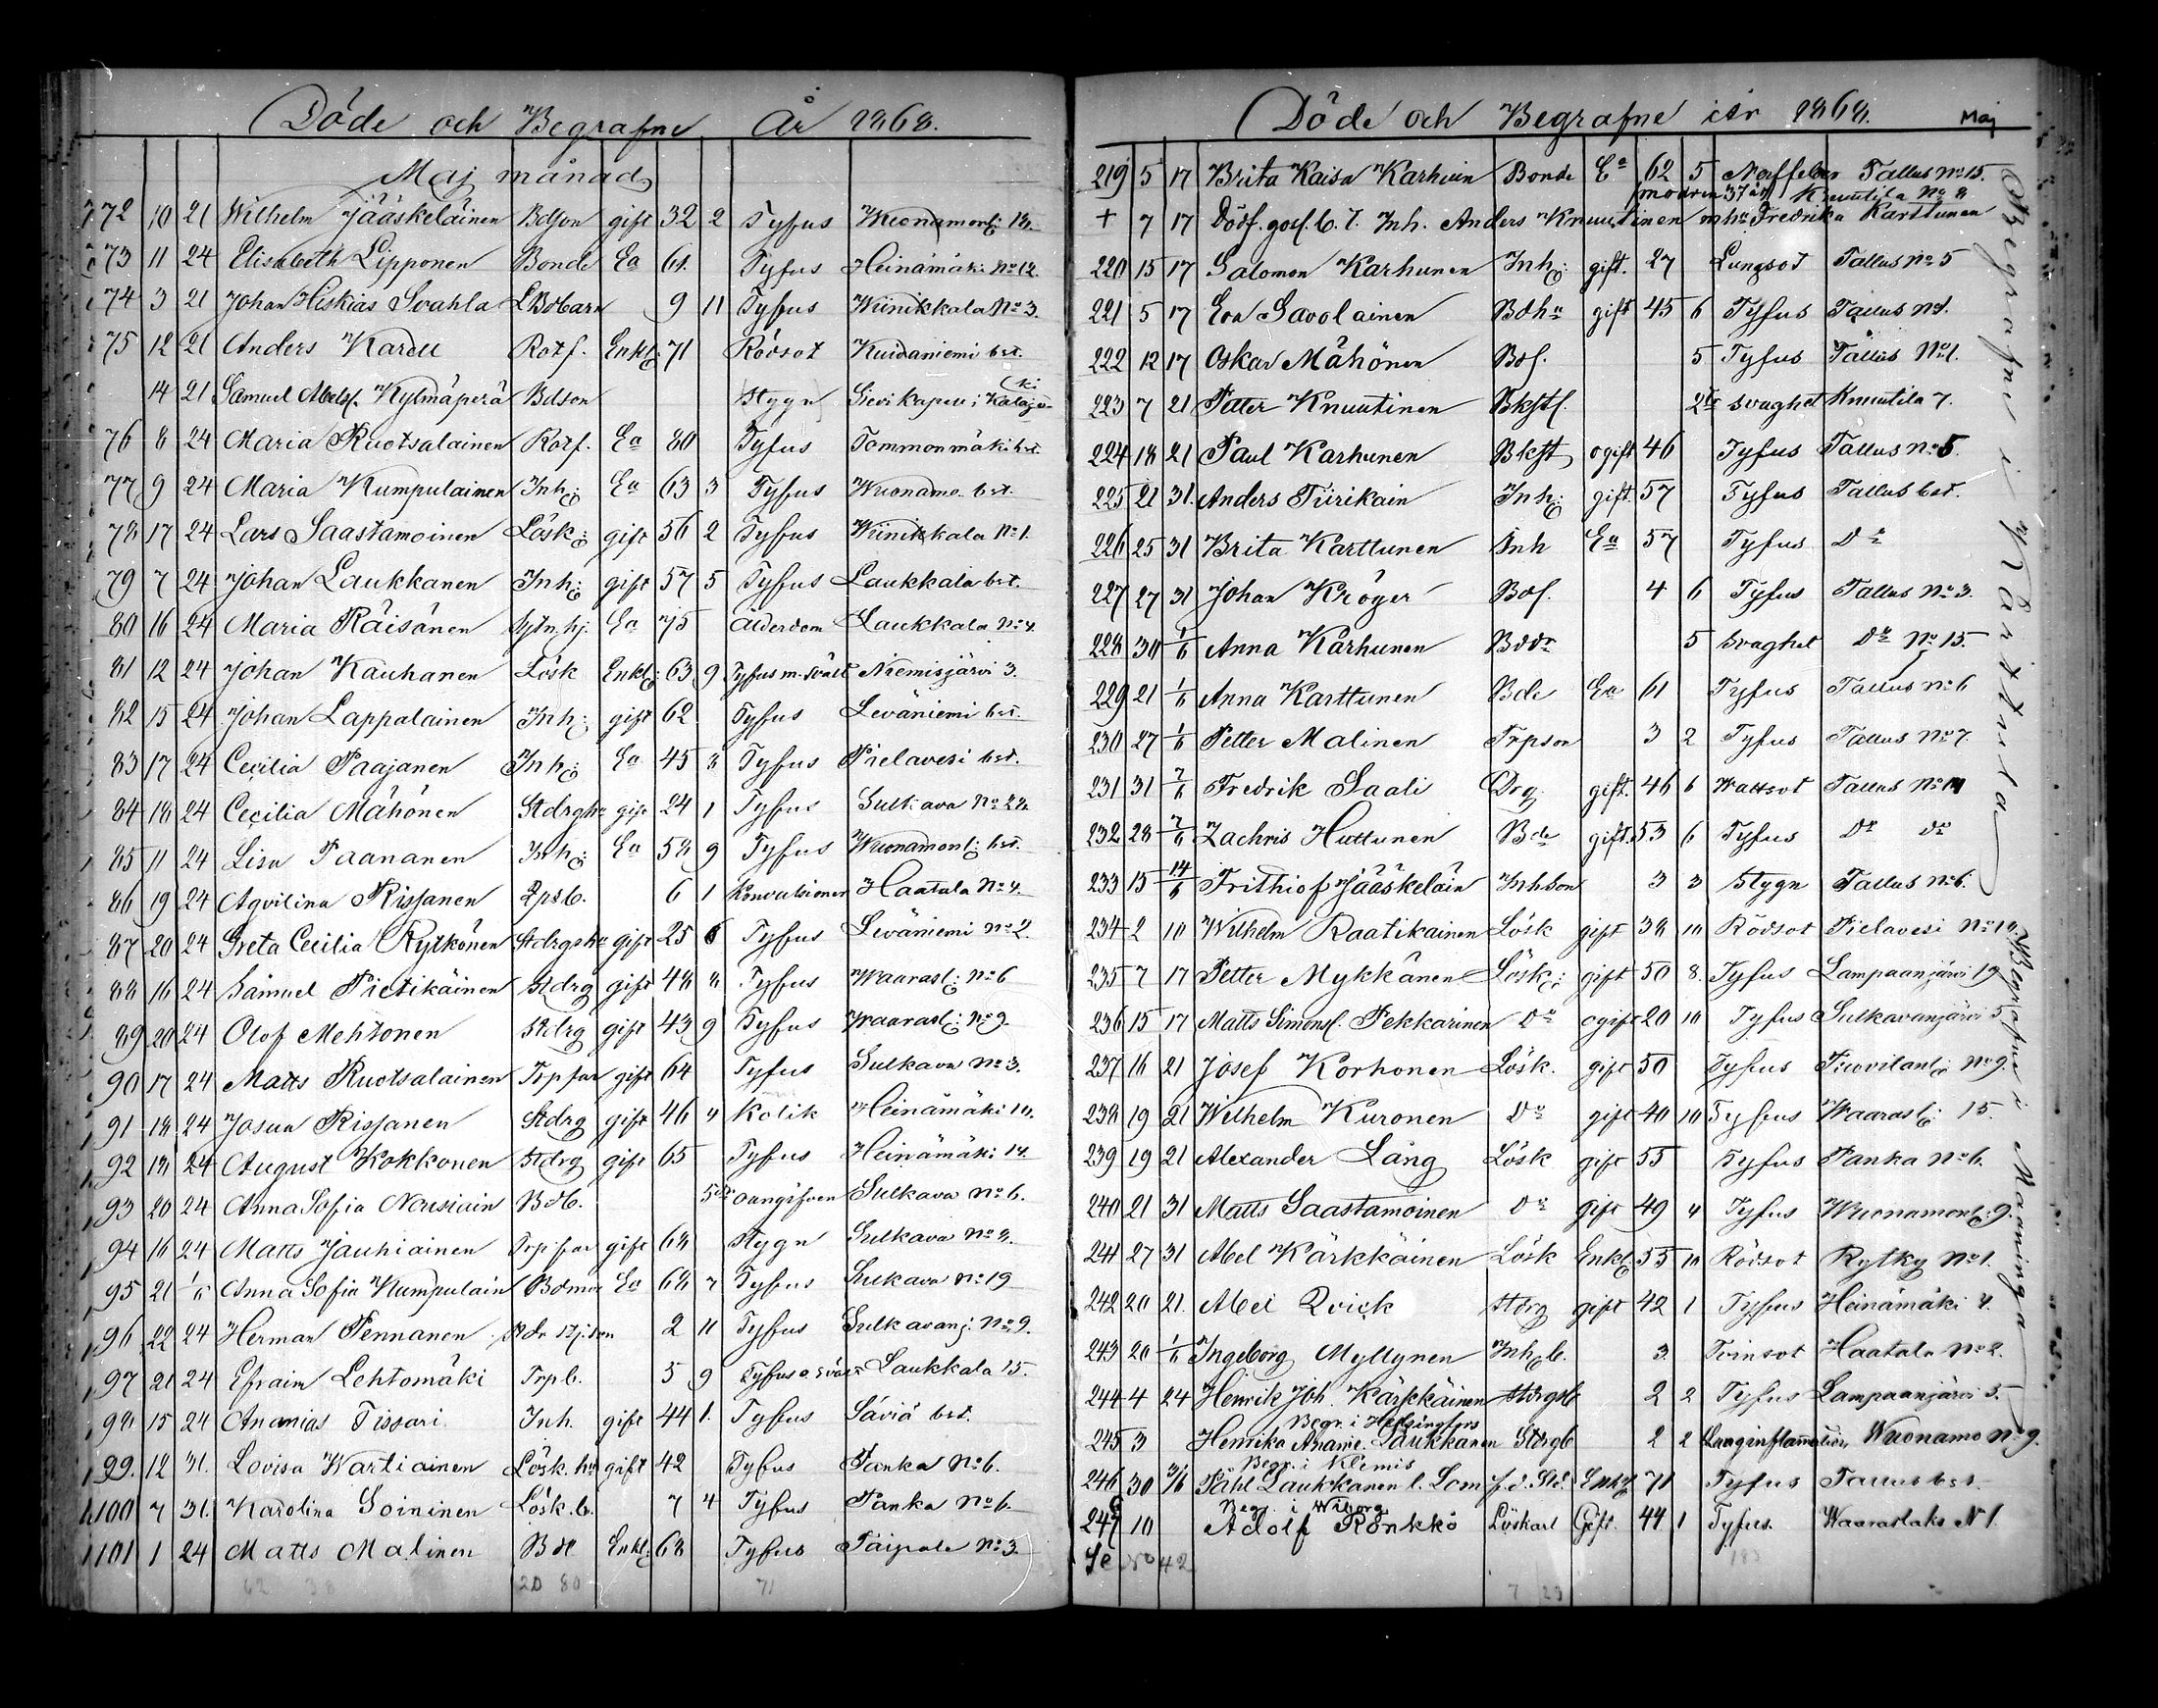 Döde och Begrafne År 1868.
Maj månad
72 10 21 Wilhelm Jääskeläinen Bdson gift 32 2 Tyfus
73 11 24 Elisabeth Lipponen Bonde Ea 61. Tyfus Heinämäki No 12.
74 3 21 Johan Hiskias Svahla LBdbarn 9 11 Tyfus Wiinikkala No 3.
75 12 21 Anders Kardu Rotf. Enkl: 71 Rödsot Kuivaniemi bst.
14 21 Samuel Abelsf. Kylmäperä Bdson Stygn Sievi Kapell i Kalajoki
76 8 24 Maria Ruotsalainen Rotf. Ea 80 Tyfus Tommonmäki bst.
77 9 24 Maria Kumpulainen Inh: Ea 63 3 Tyfus Wuonamo bst.
78 17 24 Lars Saastamoinen Lösk: gift 56 2 Tyfus Wiinikkala No 1.
79 7 24 Johan Laukkanen Inh: gift 57 5 Tyfus Laukkala bst.
80 16 24 Maria Räisänen Sytn.hj: Ea 75 ålderdom Laukkala No 4.
81 12 24 Johan Kauhanen Lösk Enkl: 63 9 Tyfus m. svält Niemisjärvi 3.
82 15 24 Johan Lappalainen Inh: gift 62 Tyfus Leväniemi bst.
83 17 24 Cecilia Paajanen Inh: Ea 45 8 Tyfus Pielavesi bst.
84 18 24 Cecilia Mähönen Stdrghu gift 24 1 Tyfus Sulkava No 28.
85 11 24 Lisa Paananen Inh: Ea 58 9 Tyfus Wuonamonl: bst.
86 19 24 Aqvilina Rissanen 6 1 Konvulsioner Haatala No 4.
87 20 24 Greta Cecilia Rytkönen Stdrgshu gift 25 6 Tyfus Leväniemi No 2.
88 16 24 Samuel Pietikäinen Stdrg gift 48 8 Tyfus Waarasl: No 6
89 20 24 Olof Mehtonen Stdrg gift 43 9 Tyfus Waarasl: No 9.
90 17 24 Matts Ruotsalainen Trpfar gift 64 Tyfus Sulkava No 3.
91 18 24 Josua Rissanen Stdrg gift 46 4 Kolik Heinämäki 10.
92 18 24 August Kokkonen Stdrg gift 65 Tyfus Heinämäki 14.
93 20 24 Anna Sofia Nousiain Bdb. 5 oangifven Sulkava No 6.
94 16 24 Matts Jauhiainen Trpfar gift 68 Stygn Sulkava No 8.
95 21 1/6 Anna Sofia Kumpulain Bdmor Ea 68 7 Tyfus Sulkava No 19
96 22 24 Herman Pennanen 2 11 Tyfus Sulkavanj. No 9.
97 21 24 Efraim Lehtomäki Trpb. 5 9 Tyfus o. svält Laukkala 15.
98 15 24 Ananias Tissari Inh. gift 44 1. Tyfus Säviä bst.
99. 12 31. Lovisa Wartiainen Lösk. hu gift 42 Tyfus Panka No 6.
1100 7 31. Karolina Soininen Lösk. b. 7 4 Tyfus Panka No 6.
1101 1 24 Matts Malinen Bde Enkl: 68 Tyfus Taipale No 3.
62 38 20 80 71
Döde och Begrafne år 1868. Maj
219 5 17 Brita Kaisa Karhuin Bonde Ea 62 5 Tallus No 15.
modren 37 år Knuutila No 8
+ 7 17 Dödf. goss. b. t. Inh. Anders Knuutinen m hu Fredrika Karttunen
220 15 17 Salomon Karhunen Inh: gift. 27 Lungsot Tallus No 5
221 5 17 Eva Savolainen Bdhu gift 45 6 Tyfus Tallus No 1.
222 12 17 Oskar Mähönen Bds. 5 Tyfus Tallus No 1.
223 7 21 Petter Knuutinen Bkstf. svaghet Knuutila 7.
224 18 21 Paul Karhunen Bkst ogift 46 Tyfus Tallus No 5.
225 21 31. Anders Tiirikain Inh: gift. 57 Tyfus Tallus bst.
226 25 31 Brita Karttunen Inh Ea 57 Tyfus Do
227 27 31 Johan Kröger Bds. 4 6 Tyfus Tallus No 3.
228 30 1/6 Anna Karhunen Bddr 5 Svaghet Do No 15.
229 21 1/6 Anna Karttunen Bde Ea 61 Tyfus Tallus No 6
230 27 1/6 Petter Malinen Trpson 3 2 Tyfus Tallus No 7.
231 31 7/6 Fredrik Saali Drg gift. 46 6 Wattsot Tallus No
232 28 7/6 Zachris Huttunen Bde gift. 53 6 Tyfus Do Do
233 15 14/6 Frithiof Jääskeläin Inhson 3 3 Stygn Tallus No 6.
Begrafne i Kärttsala
234 2 10 Wilhelm Raatikainen Lösk gift 38 10 Rödsot Pielavesi No
235 7 17 Petter Mykkänen Lösk: gift 50 8. Tyfus Lampaanjärvi 19
236 15 17 Matts Simonsf. Pekkarinen Do ogift 20 10 Tyfus Sulkavanjärvi 5
237 16 21 Josef Korhonen Lösk. gift 50 Tyfus No 9.
238 19 21 Wilhelm Kuronen Do gift 40 10 Tyfus Waarasl: 15.
239 19 21 Alexander Lång Lösk gift 55 Tyfus Panka No 6.
240 21 31 Matts Saastamoinen Do gift 49 4 Tyfus Wuonamonl: 9.
241 27 31 Abel Kärkkäinen Lösk Enkl: 55 10 Rödsot Rytky No 1.
242 20 21. Abel Qvick Stdrg gift 42 1 Tyfus Heinämäki 4.
243 20 1/6 Ingeborg Myllynen Inh.b. 3 Tvinsot Haatala No 2.
244 4 24 Henrik Joh. Kärkkäinen Stdrgsb 2 2 Tyfus Lampaanjärvi 5.
Begrafne i Maaninga
Begr. i Helsingfors
245 3 Henrika Ananie. Laukkanen Stdrgb 2 2 Lunginflammation, Wuonamo No 9.
Begr. i Klemis
246 30 31/6 Påhl Laukkanen l. Lom f.d. Sld. Enkl 71 Tyfus Tallus bst.
Begr. i Wiborg
247 10 Adolf Rönkkö Löskarl Gift. 44 1 Tyfus. Waaraslaks N 1.
Se No 42
7 23 183